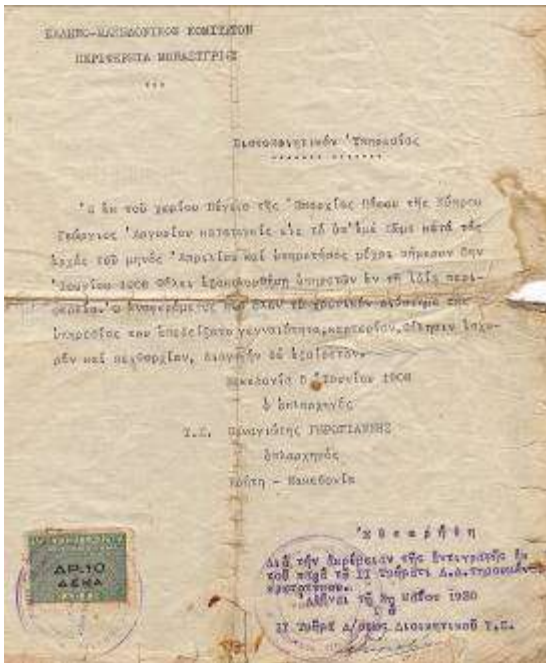 ΕΛΛΗΝΟ-ΜΑΚΕΔΟΝΙΚΟΝ ΚΟΜΙΤΑΤΟΝ
ΠΕΡΙΦΕΡΕΙΑ ΜΟΝΑΣΤΗΡΙΟΥ
Πιστοποιητικόν Ὑπηρεσίας
Ὁ ἐκ τοῦ χωρίου τῆς Ἐπαρχίας Πάφου τῆς Κύπρου
Γεώργιος καταταγείς εἰς τό ὑπ' ἐμέ Σῶμα κατά τάς
ἀρχάς τοῦ μηνός Ἀπριλίου καί ὑπηρετήσας μέχρι σήμερον
Ἰουνίου 1908 θέλει ἐξακολουθήση ὑπηρετῶν ἐν τῇ ἰδίᾳ περι-
φερείᾳ. Ὁ ἀναφερόμενος ὅλον τό χρονικόν διάστημα τῆς
ὑπηρεσίας του ἐπεδείξατο γενναιότητα, καρτερίαν, θέλησιν ἰσχυ-
ράν καί πειθαρχίαν, διαγωγήν δέ ἐξαίρετον.
Μακεδονία 5 Ἰουνίου 1908
ὁ ὁπλαρχηγός
Τ.Σ. Παναγιώτης ΓΕΡΟΓΙΑΝΝΗΣ
ὁπλαρχηγός
Κρήτη - Μακεδονία
ΔΡ. 10
ΔΕΚΑ
Ἐθεωρήθη
Διά τήν ἀκρίβειαν τῆς ἀντιγραφῆς ἐκ
τοῦ παρά τῷ
Ἀθῆναι τῇ Μαΐου 1930
Διοικητικοῦ Τ.Σ.